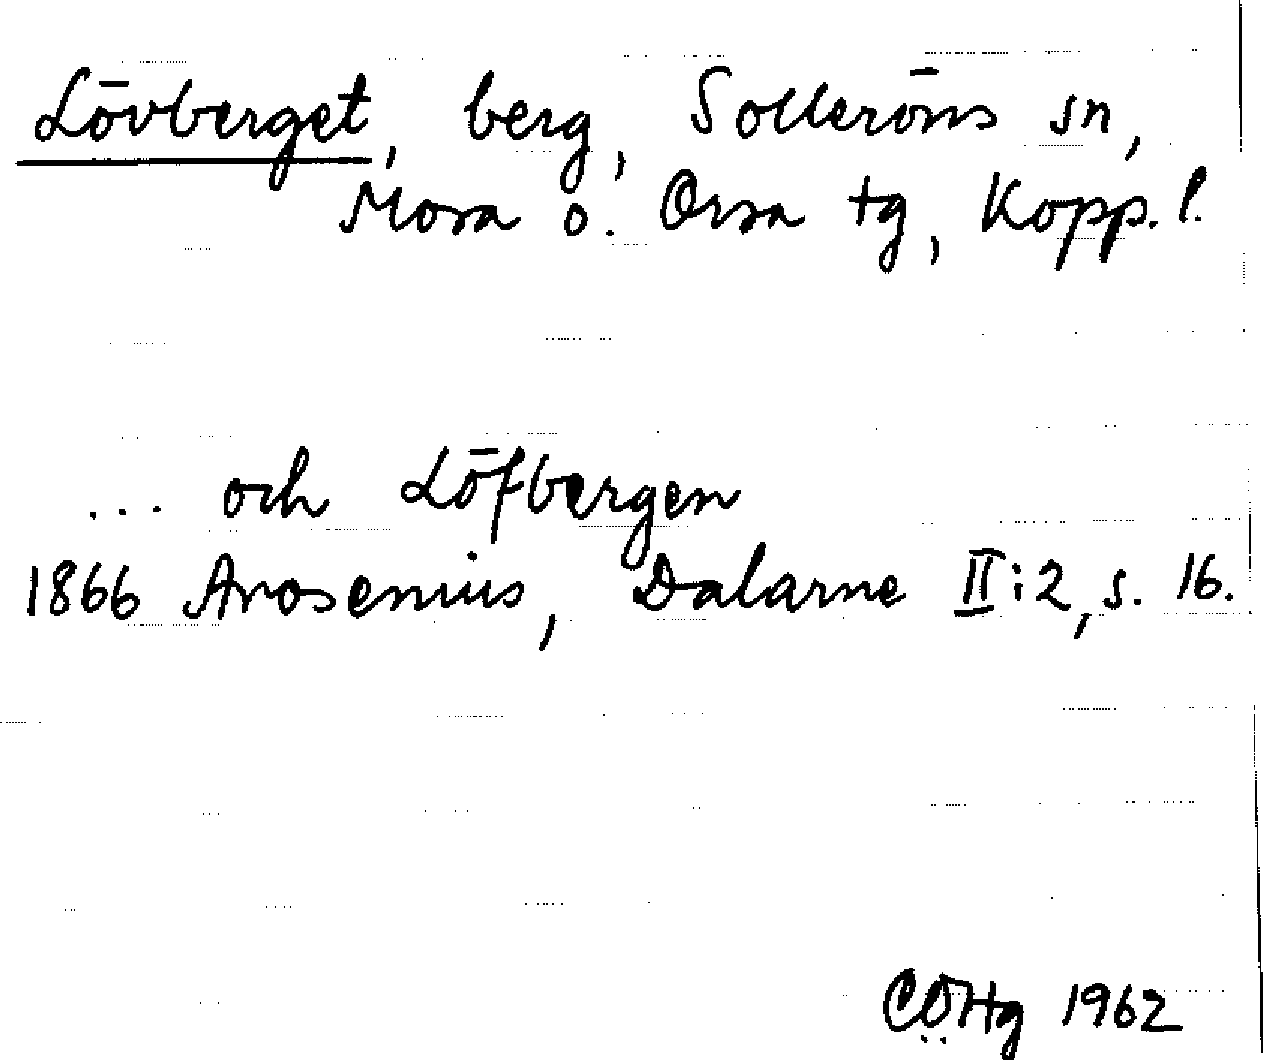 Lövberget, berg, Solleröns sn,
Mora o. Orsa tg, Kopp. l.
... och Löfbergen
1866 Arosenius, Dalarne II:2, s. 16.
CÖHg 1962